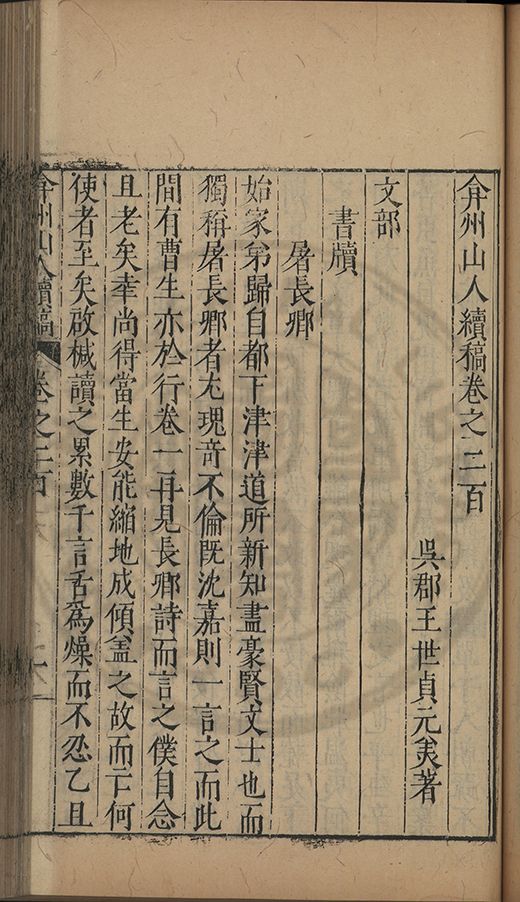 弇州山人續稿卷之二百
吳郡王世貞元美著
文部
書牘
屠長卿
始家弟歸自都下津津道所新知盡豪賢文士也而
獨稱屠長卿者尤瑰奇不倫既沈嘉則一言之而此
間有曹生亦於行卷一再見長卿詩而言之僕自念
且老矣幸尚得當生安能縮地成傾盖之故而亡何
使者至矣啟械讀之累數千言舌為燥而不忍乙且
弇州山人續稿
卷之二百
一